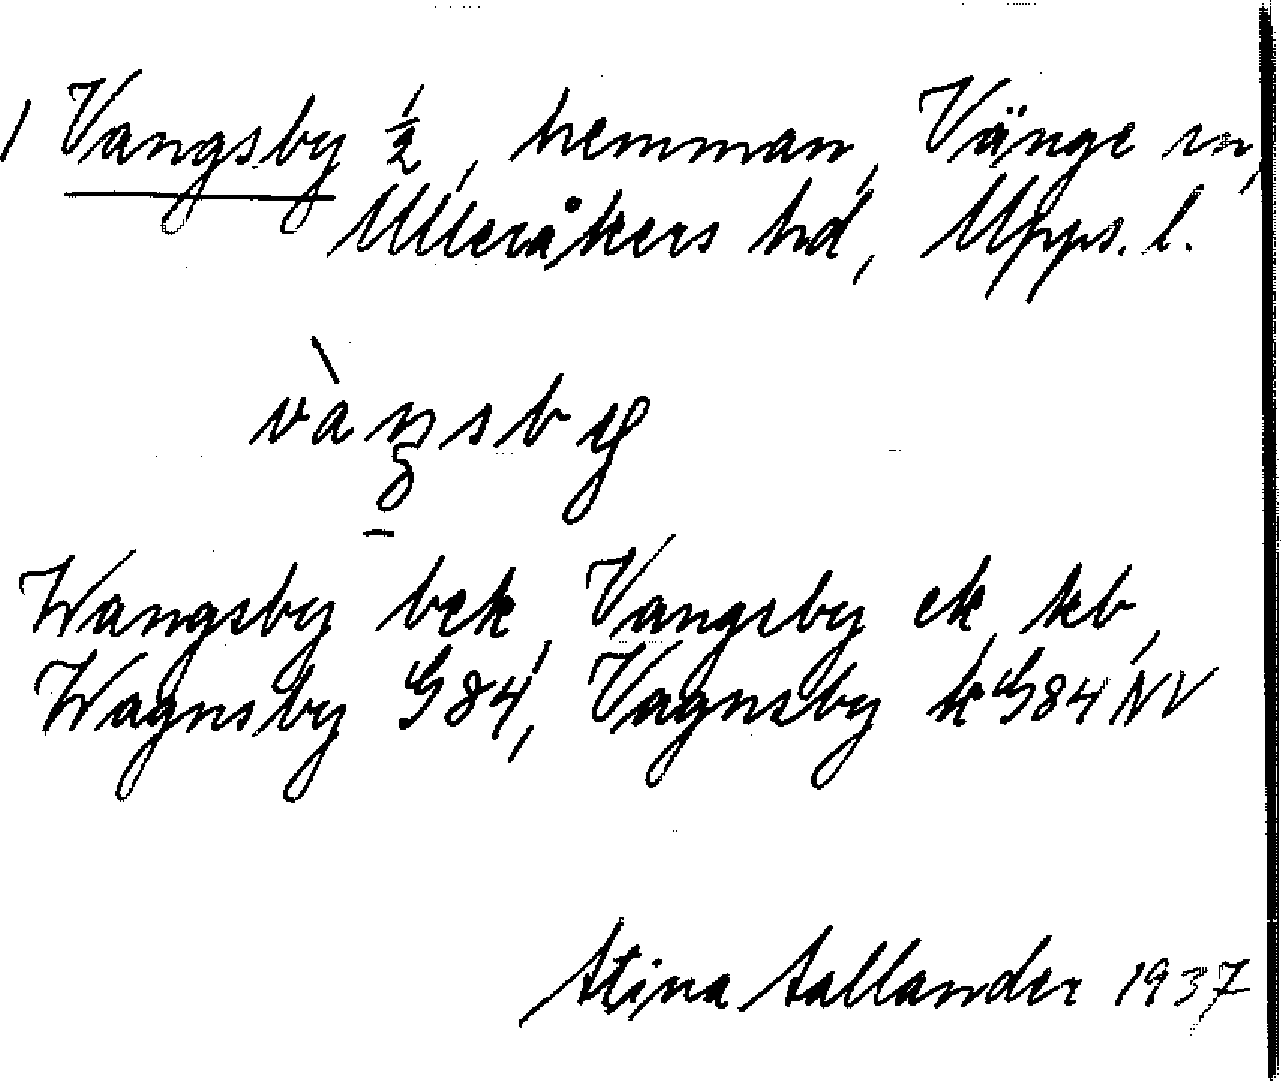 1 Vangsby ½, hemman, Vänge sn,
Ulleråkers hd, Upps. l.
vàŋsby
Wangsby bek, Vangsby ek, kb,
Wagnsby G84, Vagnsby kG84NV
Stina Sallander 1937